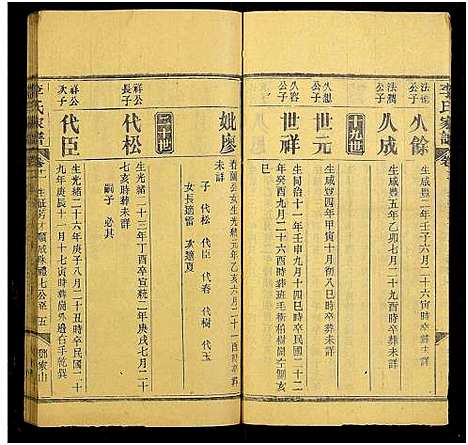 李氏家譜
法公子
久餘
生咸豐二年壬子六月二十六寅時卒葬未詳
法潤公子
久成
生咸豐五年乙卯七月二十九酉時卒葬未詳
十九世
久公子
世元
生咸豐四年甲寅十月初八巳時卒葬未詳
久容公子
世祥
生同治十一年壬申九月十四
妣廖
香蘭公女生光緒元年乙亥六月二十一酉時卒葬未詳
子 代松 代臣 代春 代樹 代玉
女長適雷 次適夏
二十世
祥公長子
代松
生光緒二十三年丁酉卒宣統二年庚戌七月二十七亥時葬未詳
嗣子 必其
祥公次子
代臣
生光緒二十六年庚子八月二十五時卒民國二十九年庚辰十一月十七寅時葬
李氏家譜
鄧家山